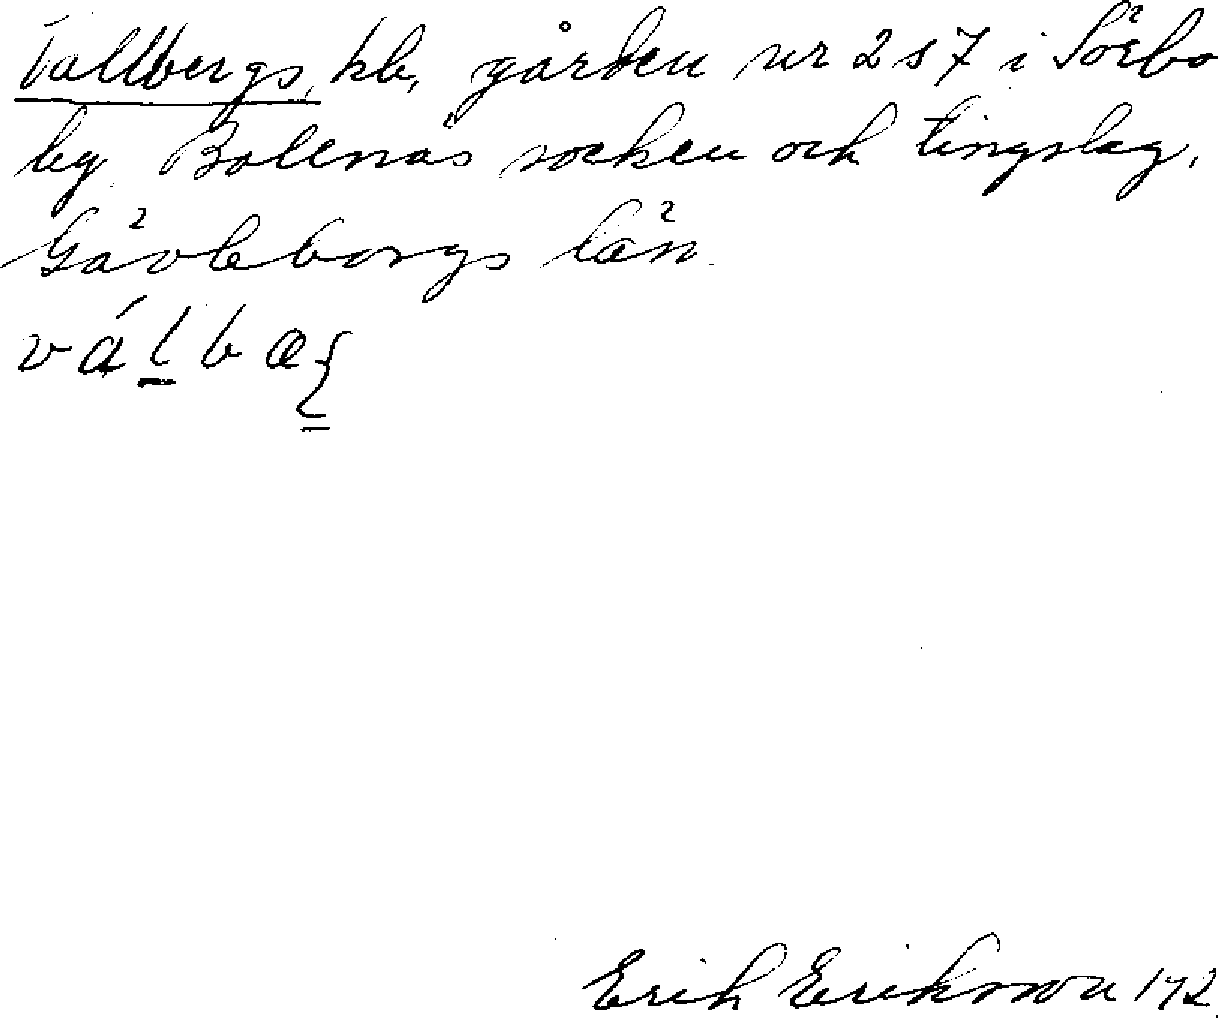 Vallbergs, hb, gården nr 2 s 7 i Sörbo
by. Bollnäs socken och tingslag,
Gävleborgs län.
Erik Eriksson 142